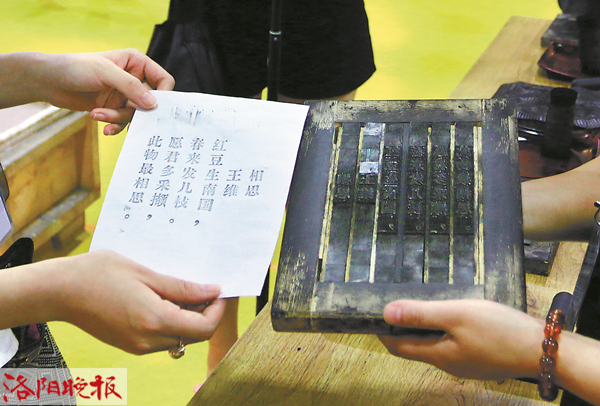 相思
王维
红豆生南国，
春来发几枝。
愿君多采撷，
此物最相思。
洛阳晚报